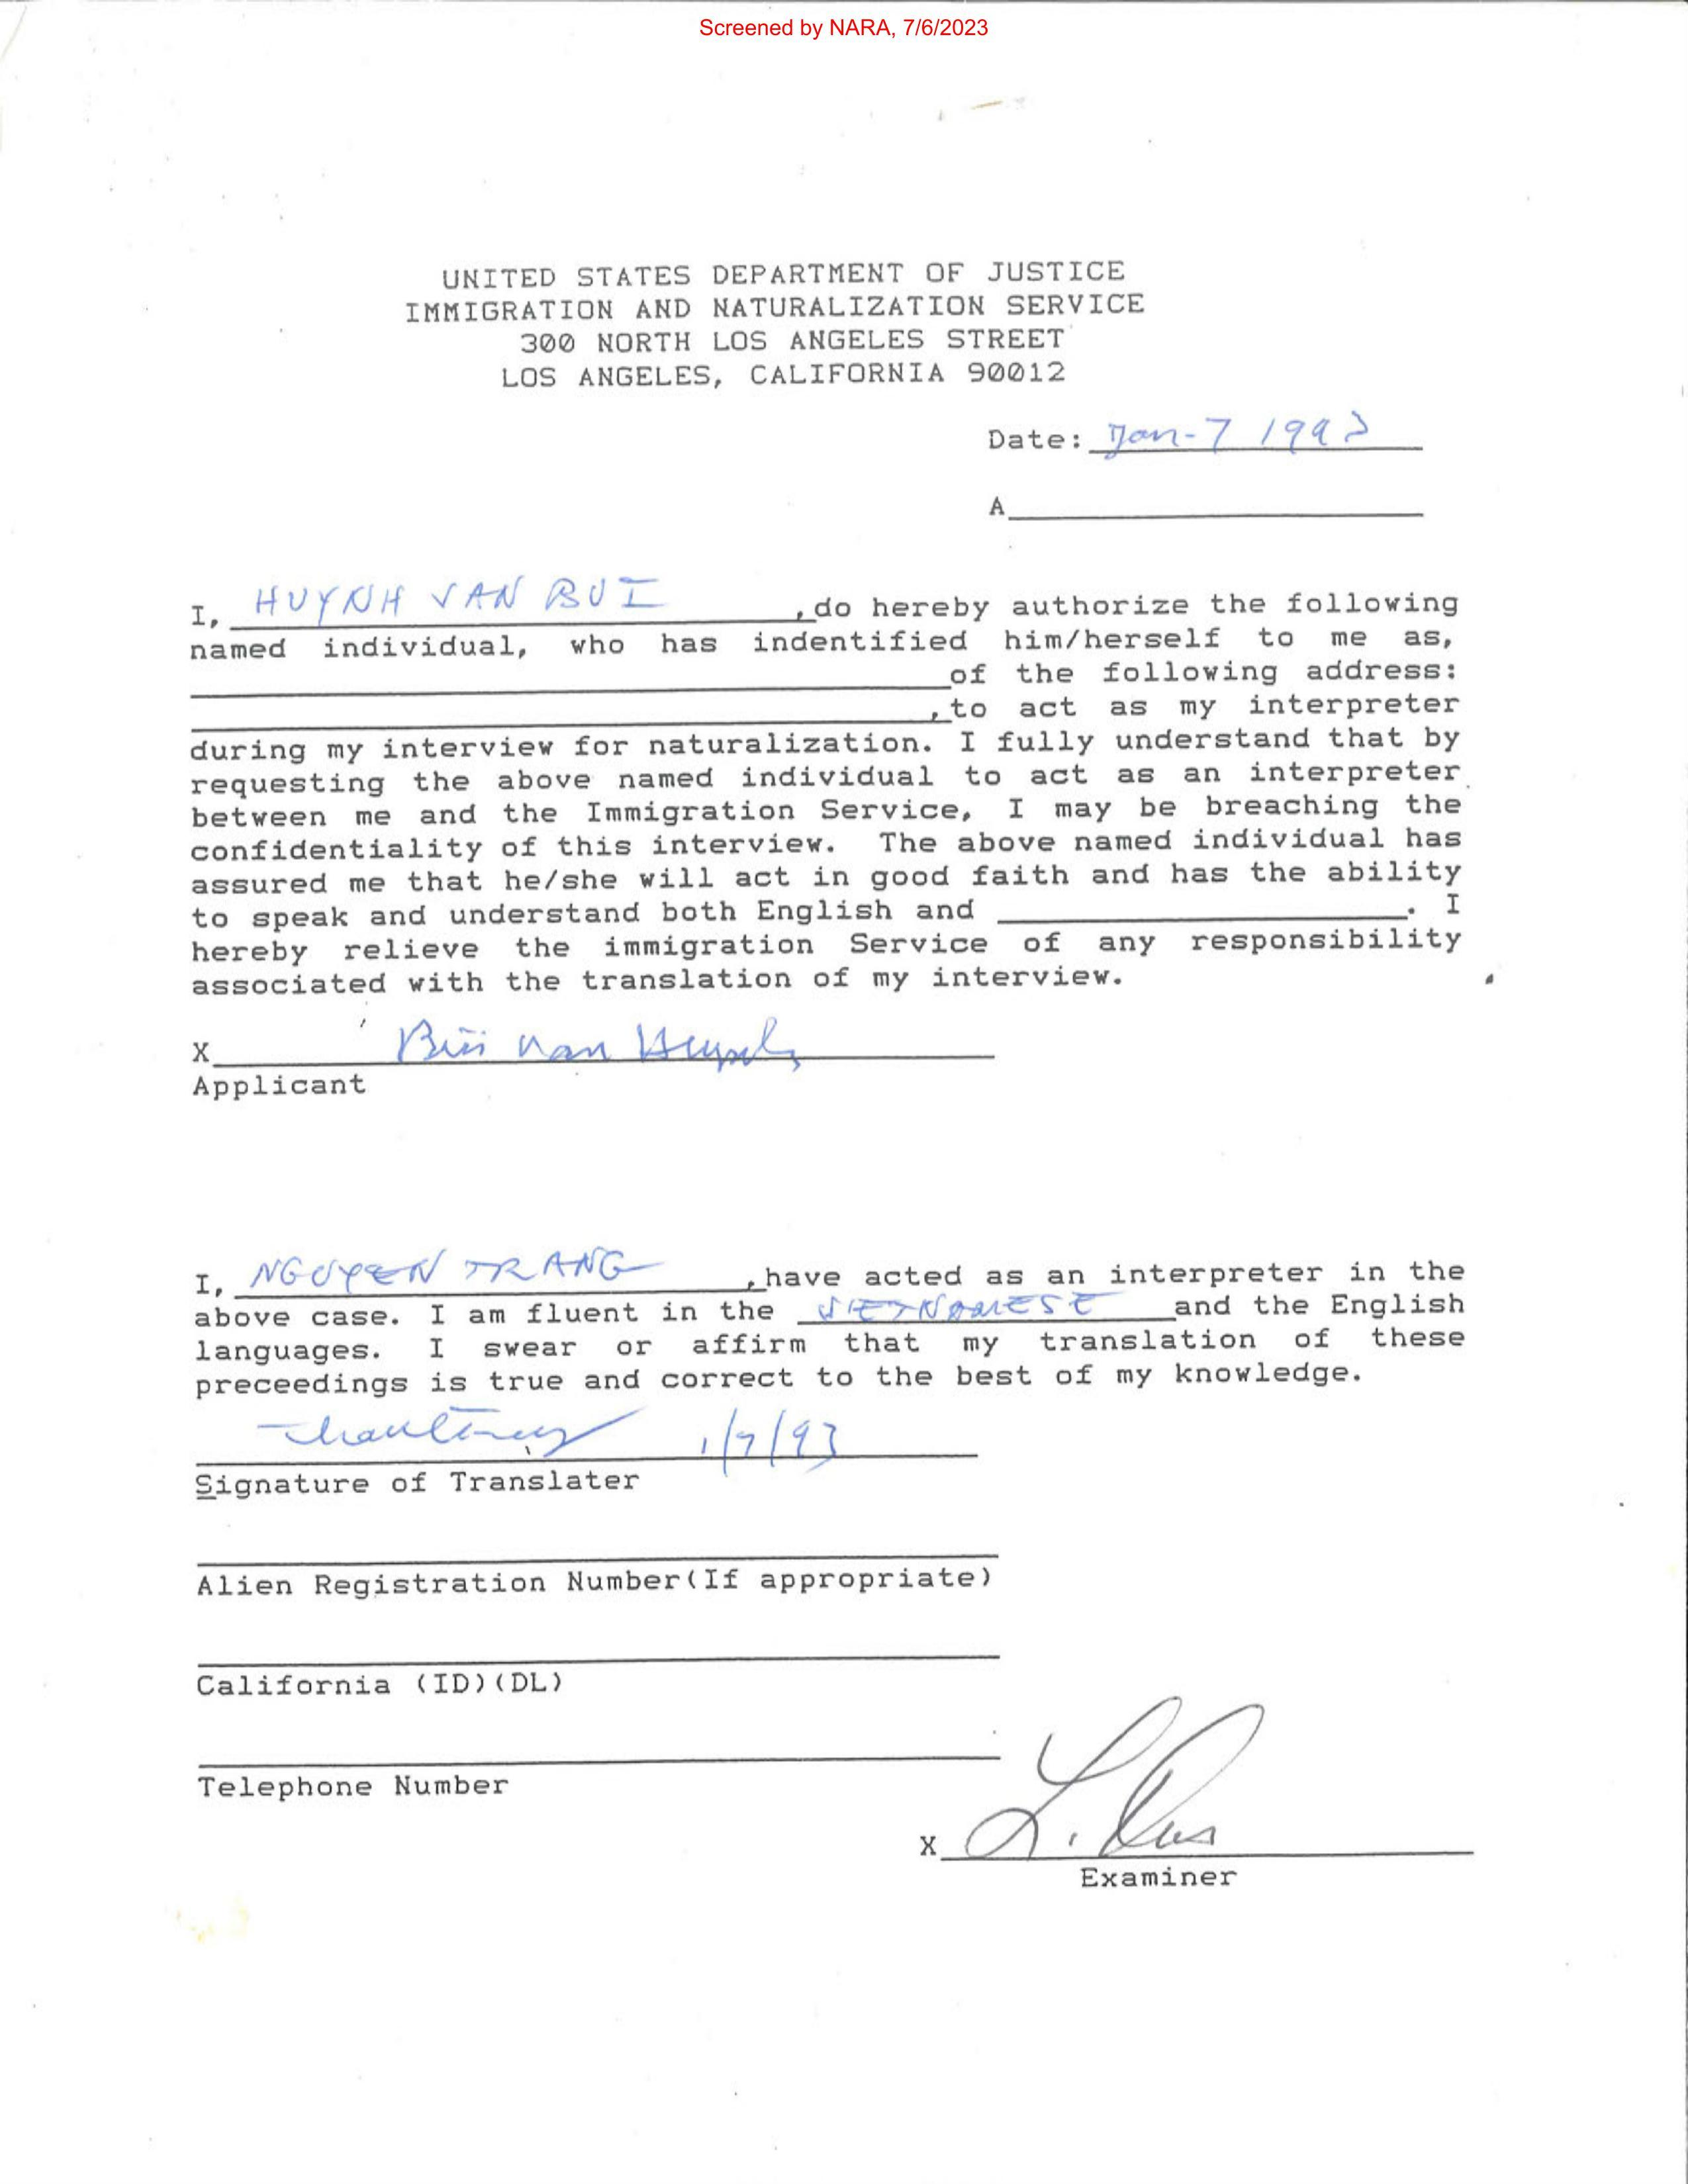 Screened by NARA, 7/6/2023
UNITED STATES DEPARTMENT OF JUSTICE
IMMIGRATION AND NATURALIZATION SERVICE
300 NORTH LOS ANGELES STREET
LOS ANGELES, CALIFORNIA 90012
Date: Jan-7 1993
A
I, HUYNH VAN BUI, do hereby authorize the following
named individual, who has indentified him/herself to me as,
of the following address:
, to act as my interpreter
during my interview for naturalization. I fully understand that by
requesting the above named individual to act as an interpreter
between me and the Immigration Service, I may be breaching the
confidentiality of this interview. The above named individual has
assured me that he/she will act in good faith and has the ability
to speak and understand both English and . I
hereby relieve the immigration Service of any responsibility
associated with the translation of my interview.
X Bùi Van Huynh
Applicant
I, NGUYEN TRANG, have acted as an interpreter in the
above case. I am fluent in the VIETNAMESE and the English
languages. I swear or affirm that my translation of these
preceedings is true and correct to the best of my knowledge.
1/7/93
Signature of Translater
Alien Registration Number(If appropriate)
California (ID)(DL)
Telephone Number
X L.
Examiner